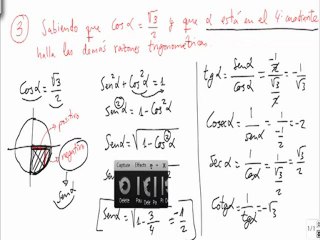 ③ Sabiendo que cos α = √3/2 y que α está en el 4º cuadrante
halla las demás razones trigonométricas.
Cos α = √3/2
positivo
negativo
Sen α
Sen²α + Cos²α = 1
Sen²α = 1 - Cos²α
Sen α = √(1 - Cos²α)
Capture Effects
Delete
[Sen α = √(1 - 3/4) = -1/2
tg α = Sen α / Cos α = (-1/2) / (√3/2) = -1/√3
Cosec α = 1/Sen α = 1/(-1/2) = -2
Sec α = 1/Cos α = 1/(√3/2) =
Cotg α = 1/tg α = -√3
1/1